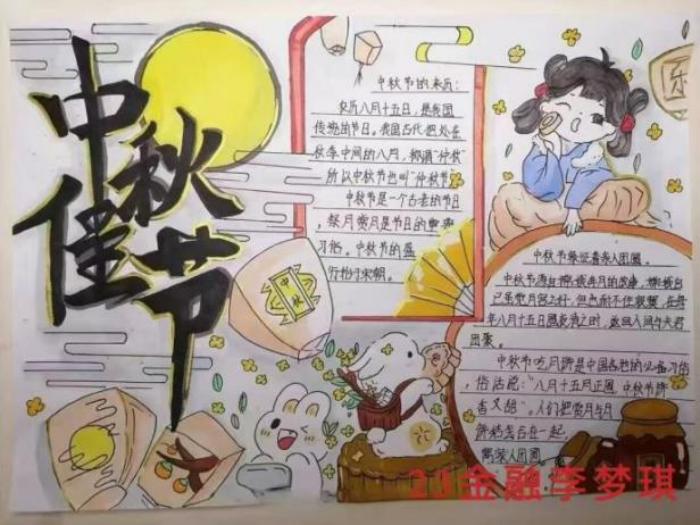 中秋佳节
中秋节的来历:
农历八月十五日,是我国
传统的节日。我国古代把处在
秋季中间的八月,称谓"仲秋"
所以中秋节也叫"仲秋节"
中秋节是一个古老的节日
祭月赏月是节日的重要
习俗。中秋节的盛
行始于宋朝。
乐
中秋
中秋节象征着亲人团圆。
中秋节源自嫦娥奔月的故事,嫦娥自
年八月十五日圆
团聚。
中秋节吃月饼是中国各地的必备习俗,
俗话说:"八月十五月正圆 中秋节饼
香又甜"。人们把赏月与月
饼结合在一起,
寓意人团圆。
23金融李梦琪